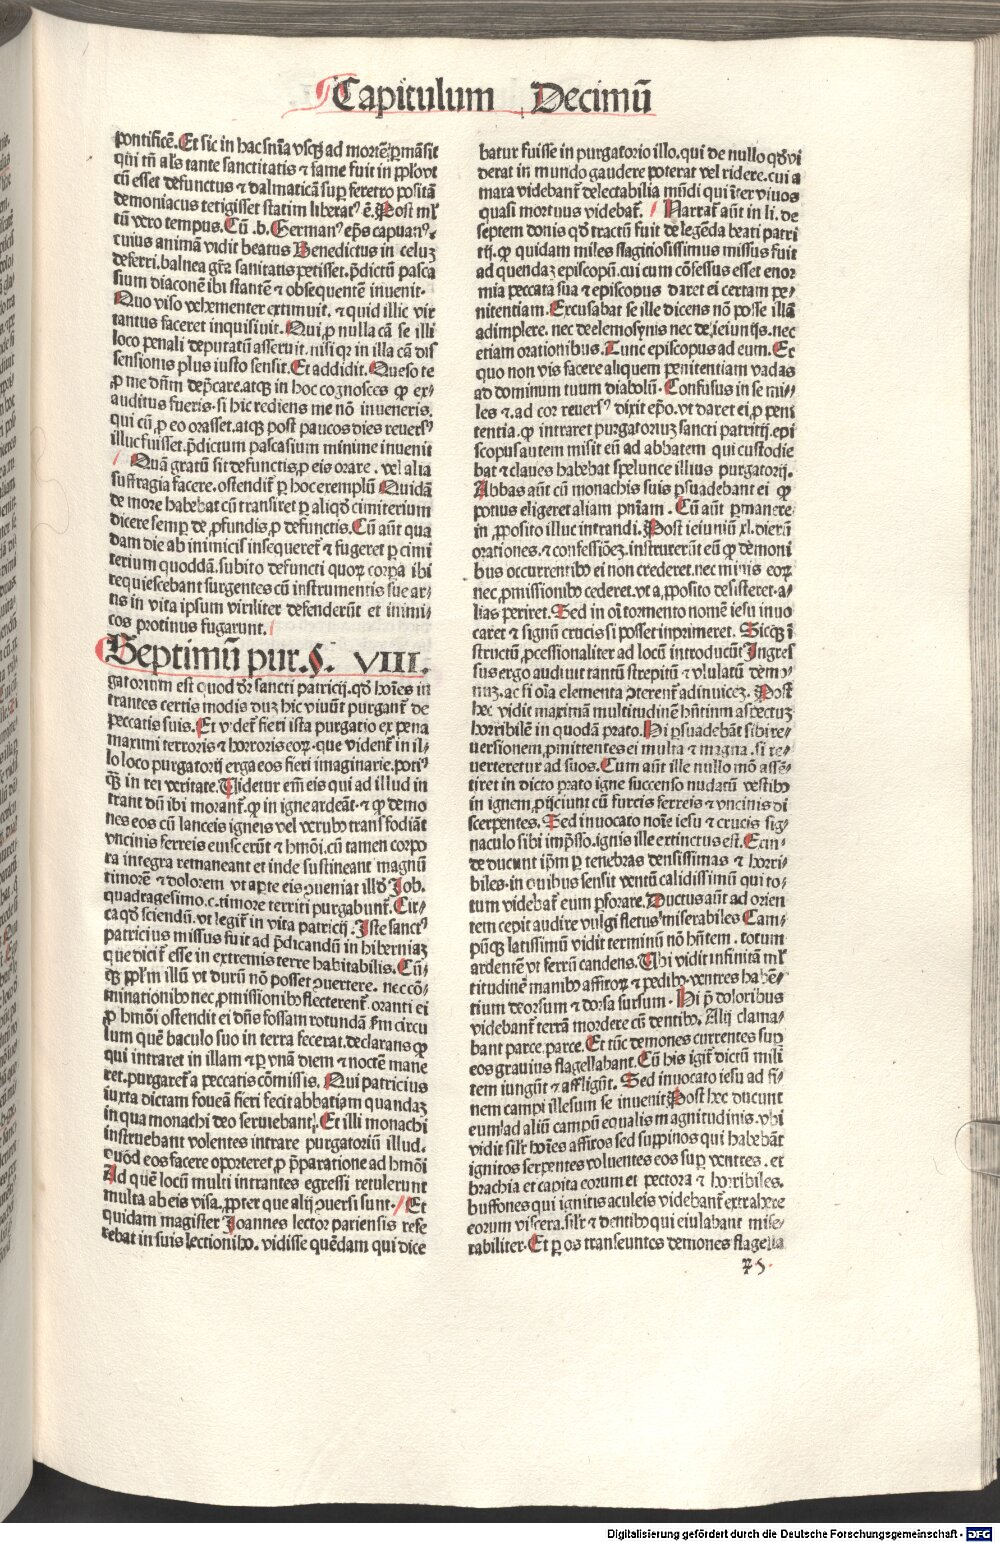 Capitulum Decimū
pontificē. Et sic in hac snīa vsqꝫ ad mortē ꝑmāsit
qui tñ als tante sanctitatis ⁊ fame fuit in pplo vt
cū esset defunctus ⁊ dalmaticā suꝑ feretro positā
demoniacus tetigisset statim liberatꝰ ē. Post ml̄
tū vero tempus. Cū .b. Germanꝰ eps capuanꝰ.
cuius animā vidit beatus Benedictus in celuꝫ
deferri. balnea grā sanitatis petisset. p̄dictū pasca
sium diaconē ibi stantē ⁊ obsequentē inuenit.
Quo viso vehementer extimuit. ⁊ quid illic vir
tantus faceret inquisiuit. Qui ꝓ nulla cā se illi
loco penali deputatū asseruit. nisi qꝛ in illa cā dis
sensionis plus iusto sensit. Et addidit. Queso te
ꝓ me dn̄m dep̄care. atqꝫ in hoc cognosces ꝙ ex⸗
auditus fueris. si hic rediens me nō inueneris.
qui cū ꝓ eo orasset. atqꝫ post paucos dies reuersꝰ
illuc fuisset. p̄dictum pascasium minime inuenit
Quā gratū sit defunctis ꝓ eis orare. vel alia
suffragia facere. ostendit̄ ꝑ hoc exemplū Quidā
de more habebat cū transiret ꝑ aliqd̄ cimiterium
dicere semꝑ de ꝓfundis ꝓ defunctis. Cū aūt qua
dam die ab inimicis insequeret̄ ⁊ fugeret ꝑ cimi
terium quoddā. subito defuncti quoꝝ corpa ibi
requiescebant surgentes cū instrumentis sue ar⸗
tis in vita ipsum viriliter defenderūt et inimi⸗
cos protinus fugarunt.
Septimū pur. §. VIII.
gatorium est quod dr̄ sancti patricij. qd̄ hoīes in
trantes certis modis duꝫ hic viuūt purgant̄ de
peccatis suis. Et videt̄ fieri ista purgatio ex pena
maximi terroris ⁊ horroris eoꝝ. que vident̄ in il⸗
lo loco purgatorij erga eos fieri imaginarie. potiꝰ
qꝫ in rei veritate. Videtur em̄ eis qui ad illud in
trant dū ibi morant̄. ꝙ in igne ardeāt. ⁊ ꝙ demo
nes eos cū lanceis igneis vel veruboꝫ transfodiāt
vncinis ferreis euiscerūt ⁊ hmōi. cū tamen corpo
ra integra remaneant et inde sustineant magnū
timorē ⁊ dolorem vt aꝑte eis ꝯueniat illd̄ Job.
quadragesimo .c. timore territi purgabunt̄. Cir⸗
ca qd̄ sciendū. vt legit̄ in vita patricij. Iste sanctꝰ
patricius missus fuit ad p̄dicandū in hiberniaꝫ
que dicit̄ esse in extremis terre habitabilis. Cū⸗
qꝫ pplm illū vt durū nō posset ꝯuertere. nec cō⸗
minationibꝫ nec ꝓmissionibꝫ flecterent̄. oranti ei
ꝓ hmōi ostendit ei dn̄s fossam rotundā fm circu
lum quē baculo suo in terra fecerat. declarans ꝙ
qui intraret in illam ⁊ ꝑ vnā diem ⁊ noctē mane
ret. purgaret̄ a peccatis cōmissis. Qui patricius
iuxta dictam foueā fieri fecit abbatiam quandaꝫ
in qua monachi deo seruiebant. Et illi monachi
instruebant volentes intrare purgatoriū illud.
quōd eos facere oporteret ꝓ p̄paratione ad hmōi
Ad quē locū multi intrantes egressi retulerunt
multa ab eis visa. ꝓpter que alij ꝯuersi sunt. Et
quidam magister Joannes lector pariensis refe
rebat in suis lectionibꝫ. vidisse quēdam qui dice
batur fuisse in purgatorio illo. qui de nullo qd̄ vi
derat in mundo gaudere poterat vel ridere. cui a
mara videbant̄ delectabilia mūdi qui īter viuos
quasi mortuus videbat̄. Narrat̄ aūt in li. de
septem donis qd̄ tractū fuit de legēda beati patri
tij. ꝙ quidam miles flagitiosissimus missus fuit
ad quendaꝫ episcopū. cui cum cōfessus esset enor
mia peccata sua ⁊ episcopus daret ei certam pe⸗
nitentiam. Excusabat se ille dicens nō posse illā
adimplere. nec de elemosynis nec de ieiunijs. nec
etiam orationibus. Tunc episcopus ad eum. Ex
quo non vis facere aliquem penitentiam vadas
ad dominum tuum diabolū. Confusus in se mi⸗
les ⁊ ad cor reuersꝰ dixit epo. vt daret ei ꝓ peni
tentia. ꝙ intraret purgatoriuꝫ sancti patritij. epi
scopus autem misit eū ad abbatem qui custodie
bat ⁊ claues habebat spelunce illius purgatorij.
Abbas aūt cū monachis suis ꝑsuadebant ei ꝙ
potius eligeret aliam pn̄iam. Cū aūt ꝑmaneret
in ꝓposito illuc intrandi. Post ieiuniū xl. dierū
orationes. ⁊ confessiōeꝫ. instruxerūt eū ꝙ demoni
bus occurrentibꝫ ei non crederet. nec minis eoꝝ
nec ꝓmissionibꝫ cederet. vt a ꝓposito desisteret. a⸗
lias periret. Sed in oī tormento nomē iesu inuo
caret ⁊ signū crucis si posset inprimeret. Sicqꝫ ī
structū ꝓcessionaliter ad locū introducūt Ingres
sus ergo audiuit tantū strepitū ⁊ vlulatū demo⸗
nuꝫ. ac si oīa elementa ꝯterent̄ adinuiceꝫ. Post
hec vidit maximā multitudinē hn̄tium aspectuꝫ
horribilē in quodā prato. Hi ꝑsuadebāt sibi re⸗
uersionem ꝓmittentes ei multa ⁊ magna. si re⸗
uerteretur ad suos. Cum aūt ille nullo mō assē⸗
tiret in dicto prato igne succenso nudatū vestibꝫ
in ignem ꝓijciunt cū furcis ferreis ⁊ vncinis di
scerpentes. Sed inuocato noīe iesu ⁊ crucis sig⸗
naculo sibi imp̄sso. ignis ille extinctus est. Exin⸗
de ducunt ip̄m ꝑ tenebras densissimas ⁊ horri⸗
biles. in quibus sensit ventū calidissimū qui to⸗
tum videbat̄ eum ꝑforare. Ductus aūt ad orien
tem cepit audire vulgi fletus miserabiles Cam⸗
pūqꝫ latissimū vidit terminū nō hn̄tem. totum
ardentē vt ferrū candens. Vbi vidit infinitā ml̄
titudinē manibꝫ affixoꝝ ⁊ pedibꝫ. ventres habē⸗
tium deorsum ⁊ dorsa sursum. Hi p̄ doloribus
videbant̄ terrā mordere cū dentibꝫ. Alij clama⸗
bant parce. parce. Et tūc demones currentes suꝑ
eos grauius flagellabant. Cū his igit̄ dictū mili
tem iungūt ⁊ affligūt. Sed inuocato iesu ad fi⸗
nem campi illesum se inuenit Post hec ducunt
eum ad aliū campū equalis magnitudinis. vbi
vidit silr hoīes affixos sed supinos qui habebāt
ignitos serpentes voluentes eos suꝑ ventres. et
brachia et capita eorum et pectora ⁊ horribiles.
buffones qui ignitis aculeis videbant̄ extrahere
eorum viscera. silr ⁊ dentibꝫ qui eiulabant mise⸗
rabiliter. Et ꝑ os transeuntes demones flagella
Digitalisierung gefördert durch die Deutsche Forschungsgemeinschaft - DFG